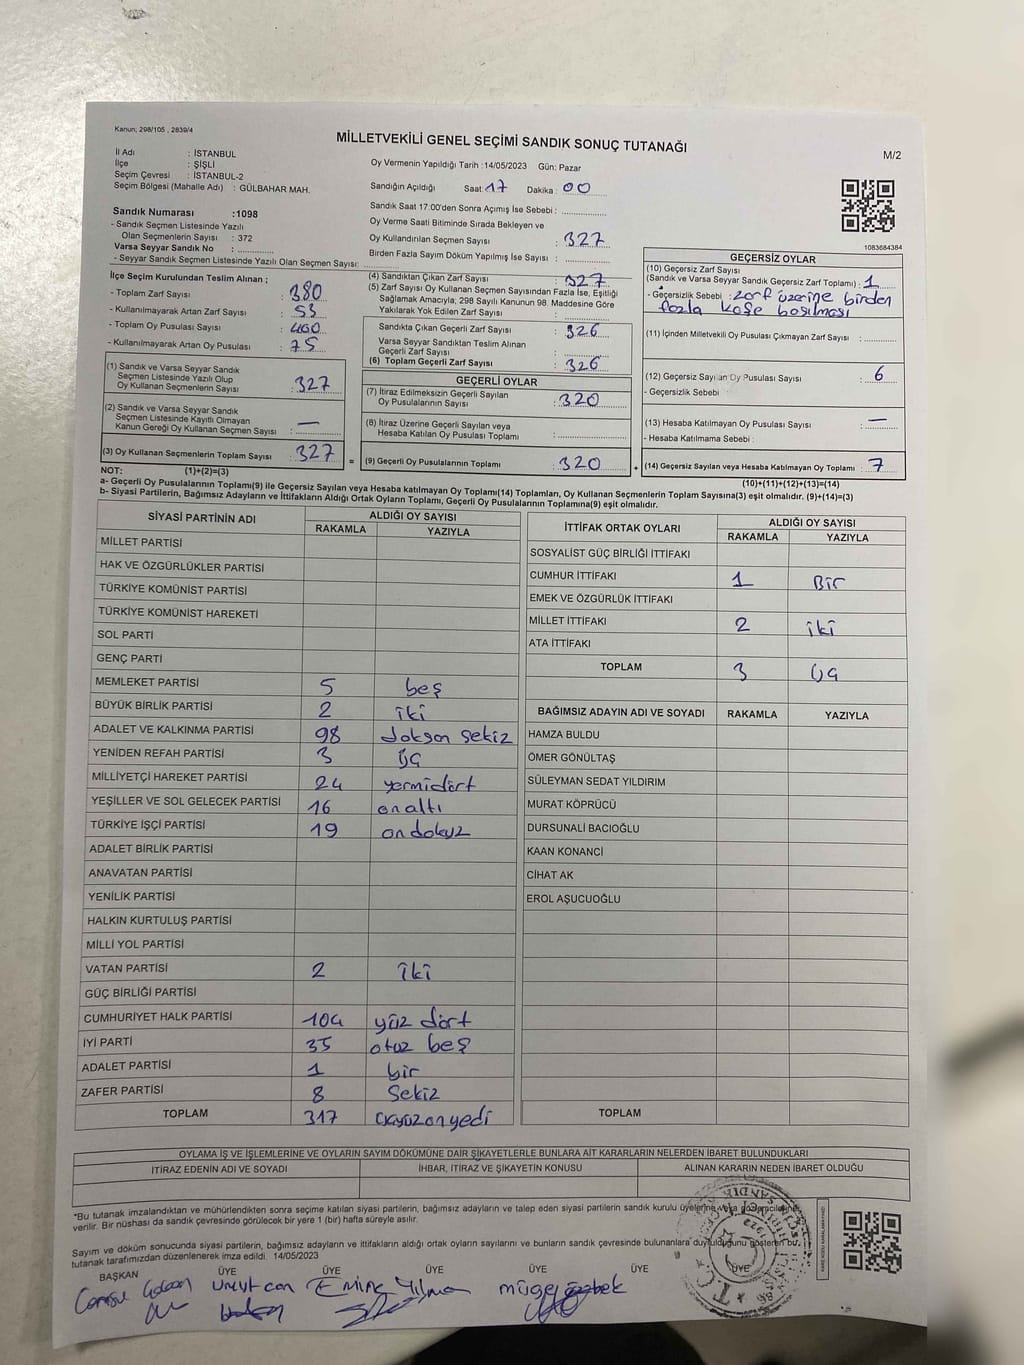 Kanun; 298/105 , 2839/4
MİLLETVEKİLİ GENEL SEÇİMİ SANDIK SONUÇ TUTANAĞI
M/2
İl Adı : İSTANBUL
İlçe : ŞİŞLİ
Seçim Çevresi : İSTANBUL-2
Seçim Bölgesi (Mahalle Adı) : GÜLBAHAR MAH.
Oy Vermenin Yapıldığı Tarih :14/05/2023 Gün: Pazar
Sandığın Açıldığı Saat: 17 Dakika: 00
Sandık Saat 17:00'den Sonra Açımış İse Sebebi :
Oy Verme Saati Bitiminde Sırada Bekleyen ve
Oy Kullandırılan Seçmen Sayısı : 327
Birden Fazla Sayım Döküm Yapılmış İse Sayısı :
1083684384
Sandık Numarası :1098
- Sandık Seçmen Listesinde Yazılı
Olan Seçmenlerin Sayısı : 372
Varsa Seyyar Sandık No :
- Seyyar Sandık Seçmen Listesinde Yazılı Olan Seçmen Sayısı:
İlçe Seçim Kurulundan Teslim Alınan ;
- Toplam Zarf Sayısı : 380
- Kullanılmayarak Artan Zarf Sayısı : 53
- Toplam Oy Pusulası Sayısı : 400
- Kullanılmayarak Artan Oy Pusulası : 75
(1) Sandık ve Varsa Seyyar Sandık
Seçmen Listesinde Yazılı Olup
Oy Kullanan Seçmenlerin Sayısı : 327
(2) Sandık ve Varsa Seyyar Sandık
Seçmen Listesinde Kayıtlı Olmayan
Kanun Gereği Oy Kullanan Seçmen Sayısı : —
(3) Oy Kullanan Seçmenlerin Toplam Sayısı : 327
(4) Sandıktan Çıkan Zarf Sayısı : 327
(5) Zarf Sayısı Oy Kullanan Seçmen Sayısından Fazla İse, Eşitliği
Sağlamak Amacıyla; 298 Sayılı Kanunun 98. Maddesine Göre
Yakılarak Yok Edilen Zarf Sayısı :
Sandıkta Çıkan Geçerli Zarf Sayısı : 326
Varsa Seyyar Sandıktan Teslim Alınan
Geçerli Zarf Sayısı :
(6) Toplam Geçerli Zarf Sayısı : 326
GEÇERLİ OYLAR
(7) İtiraz Edilmeksizin Geçerli Sayılan
Oy Pusulalarının Sayısı : 320
(8) İtiraz Üzerine Geçerli Sayılan veya
Hesaba Katılan Oy Pusulası Toplamı :
= (9) Geçerli Oy Pusulalarının Toplamı : 320
GEÇERSİZ OYLAR
(10) Geçersiz Zarf Sayısı
(Sandık ve Varsa Seyyar Sandık Geçersiz Zarf Toplamı) : 1
- Geçersizlik Sebebi : zarf üzerine birden
fazla kaşe basılması
(11) İçinden Milletvekili Oy Pusulası Çıkmayan Zarf Sayısı :
(12) Geçersiz Sayılan Oy Pusulası Sayısı : 6
- Geçersizlik Sebebi :
(13) Hesaba Katılmayan Oy Pusulası Sayısı : —
- Hesaba Katılmama Sebebi :
+ (14) Geçersiz Sayılan veya Hesaba Katılmayan Oy Toplamı : 7
NOT: (1)+(2)=(3)
(10)+(11)+(12)+(13)=(14)
a- Geçerli Oy Pusulalarının Toplamı(9) ile Geçersiz Sayılan veya Hesaba katılmayan Oy Toplamı(14) Toplamları, Oy Kullanan Seçmenlerin Toplam Sayısına(3) eşit olmalıdır. (9)+(14)=(3)
b- Siyasi Partilerin, Bağımsız Adayların ve İttifakların Aldığı Ortak Oyların Toplamı, Geçerli Oy Pusulalarının Toplamına(9) eşit olmalıdır.
SİYASİ PARTİNİN ADI ALDIĞI OY SAYISI
RAKAMLA YAZIYLA
MİLLET PARTİSİ
HAK VE ÖZGÜRLÜKLER PARTİSİ
TÜRKİYE KOMÜNİST PARTİSİ
TÜRKİYE KOMÜNİST HAREKETİ
SOL PARTİ
GENÇ PARTİ
MEMLEKET PARTİSİ 5 beş
BÜYÜK BİRLİK PARTİSİ 2 iki
ADALET VE KALKINMA PARTİSİ 98 doksan sekiz
YENİDEN REFAH PARTİSİ 3 üç
MİLLİYETÇİ HAREKET PARTİSİ 24 yermidört
YEŞİLLER VE SOL GELECEK PARTİSİ 16 onaltı
TÜRKİYE İŞÇİ PARTİSİ 19 ondokuz
ADALET BİRLİK PARTİSİ
ANAVATAN PARTİSİ
YENİLİK PARTİSİ
HALKIN KURTULUŞ PARTİSİ
MİLLİ YOL PARTİSİ
VATAN PARTİSİ 2 iki
GÜÇ BİRLİĞİ PARTİSİ
CUMHURİYET HALK PARTİSİ 104 yüz dört
İYİ PARTİ 35 otuz beş
ADALET PARTİSİ 1 bir
ZAFER PARTİSİ 8 Sekiz
TOPLAM 317 üçyüzonyedi
İTTİFAK ORTAK OYLARI ALDIĞI OY SAYISI
RAKAMLA YAZIYLA
SOSYALİST GÜÇ BİRLİĞİ İTTİFAKI
CUMHUR İTTİFAKI 1 Bir
EMEK VE ÖZGÜRLÜK İTTİFAKI
MİLLET İTTİFAKI 2 iki
ATA İTTİFAKI
TOPLAM 3 üç
BAĞIMSIZ ADAYIN ADI VE SOYADI RAKAMLA YAZIYLA
HAMZA BULDU
ÖMER GÖNÜLTAŞ
SÜLEYMAN SEDAT YILDIRIM
MURAT KÖPRÜCÜ
DURSUNALİ BACIOĞLU
KAAN KONANCİ
CİHAT AK
EROL AŞUCUOĞLU
TOPLAM
OYLAMA İŞ VE İŞLEMLERİNE VE OYLARIN SAYIM DÖKÜMÜNE DAİR ŞİKAYETLERLE BUNLARA AİT KARARLARIN NELERDEN İBARET BULUNDUKLARI
İTİRAZ EDENİN ADI VE SOYADI İHBAR, İTİRAZ VE ŞİKAYETİN KONUSU ALINAN KARARIN NEDEN İBARET OLDUĞU
*Bu tutanak imzalandıktan ve mühürlendikten sonra seçime katılan siyasi partilerin, bağımsız adayların ve talep eden siyasi partilerin sandık kurulu üyelerine veya gözlemcilerine
verilir. Bir nüshası da sandık çevresinde görülecek bir yere 1 (bir) hafta süreyle asılır.
Sayım ve döküm sonucunda siyasi partilerin, bağımsız adayların ve ittifakların aldığı ortak oyların sayılarını ve bunların sandık çevresinde bulunanlara duyulduğunu gösteren bu
tutanak tarafımızdan düzenlenerek imza edildi. 14/05/2023
BAŞKAN ÜYE ÜYE ÜYE ÜYE ÜYE
Emine Yılmaz müge özbek